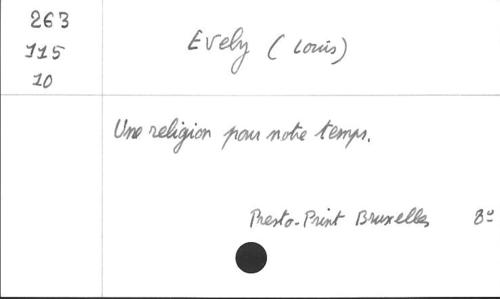 263
115
10
Evely (Louis)
Une religion pour notre temps.
Presto-Print Bruxelles 8º